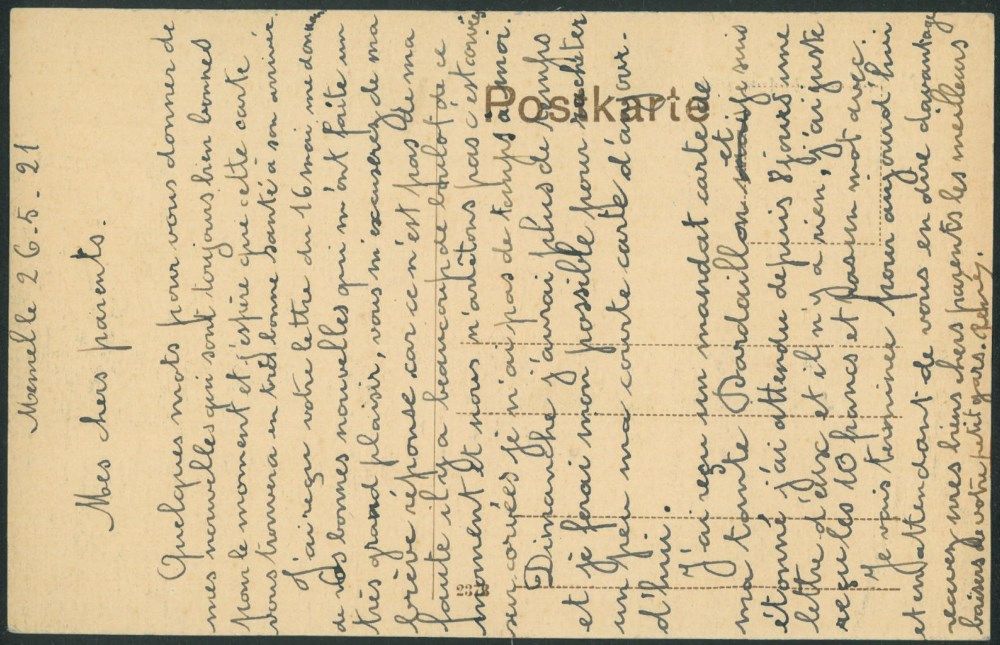 Memel le 26-5-21
Mes chers parents.
Quelques mots pour vous donner de
mes nouvelles qui sont toujours bien bonnes
pour le moment et j'espère que cette carte
vous trouvera en très bonne santé à son arrivée
J'ai reçu votre lettre du 16 mai me donnant
de vos bonnes nouvelles qui m'ont faite un
très grand plaisir, vous m'excuserez de ma
brève réponse car ce n'est pas de ma
faute il y a beaucoup de boulot de ce
moment et nous n'arrêtons pas c'est corvées
sur corvées je n'ai pas de temps à moi
Dimanche j'aurai plus de temps
et je ferai mon possible pour racheter
un peu ma courte carte d'aujour-
d'hui.
J'ai reçu un mandat carte de
ma tante Dardaillon et je suis
étonné j'ai attendu depuis 8 jours une
lettre d'eux et il n'y a rien, j'ai juste
reçu les 10 francs et pas un mot avec.
Je vais terminer pour aujourd'hui
et en attendant de vous en dire davantage
recevez mes biens chers parents les meilleurs
baisers de votre petit gars.
Postkarte